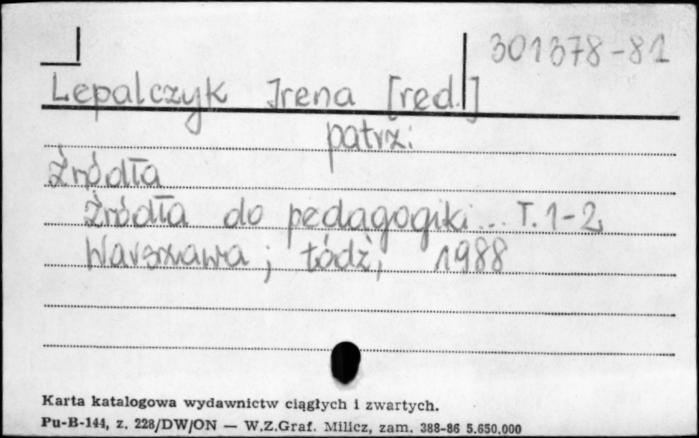 301378-81
Lepalczyk Irena [red.]
patrz:
Źródła
Źródła do pedagogiki... T. 1-2
Warszawa; Łódź, 1988
Karta katalogowa wydawnictw ciągłych i zwartych.
Pu-B-144, z. 228/DW/ON — W.Z.Graf. Milicz, zam. 388-86 5.650.000